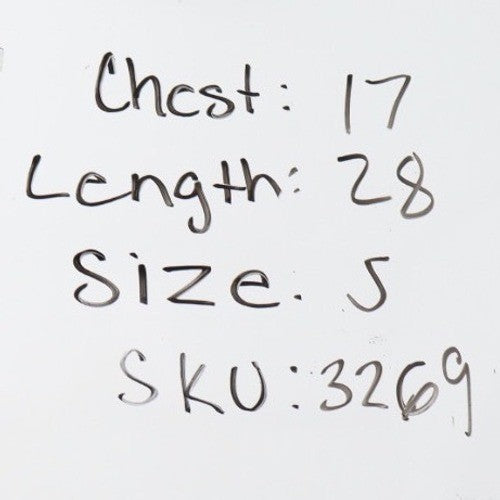 Chest: 17
Length: 28
Size. S
SKU: 3269